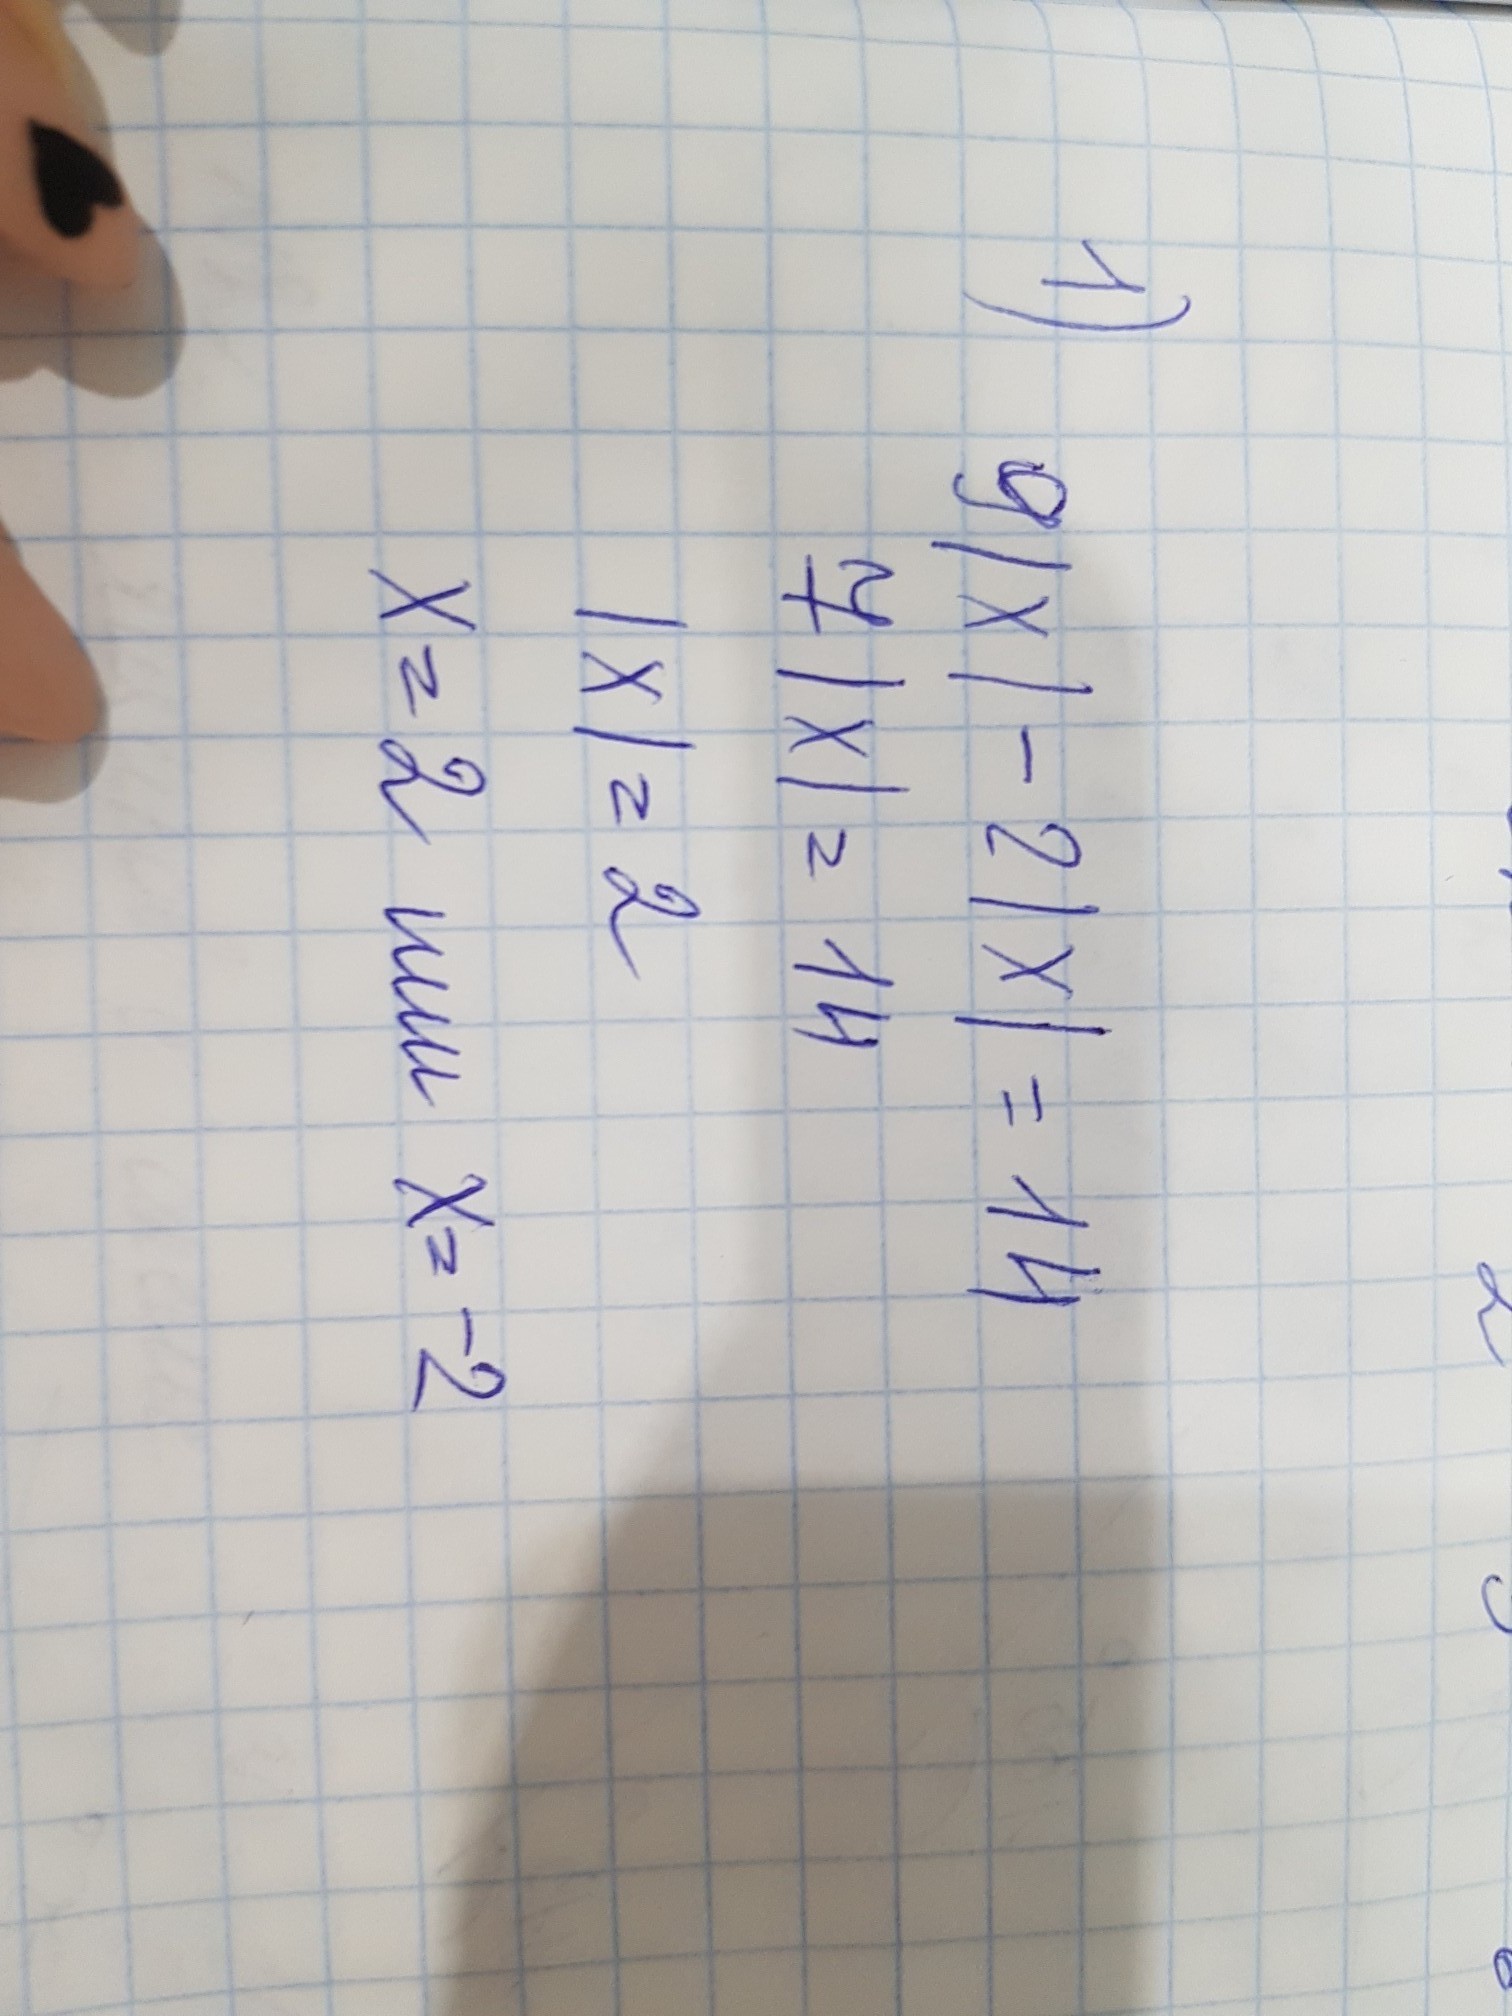 1) 9|x| - 2|x| = 14
7|x| = 14
|x| = 2
x = 2 или x = -2